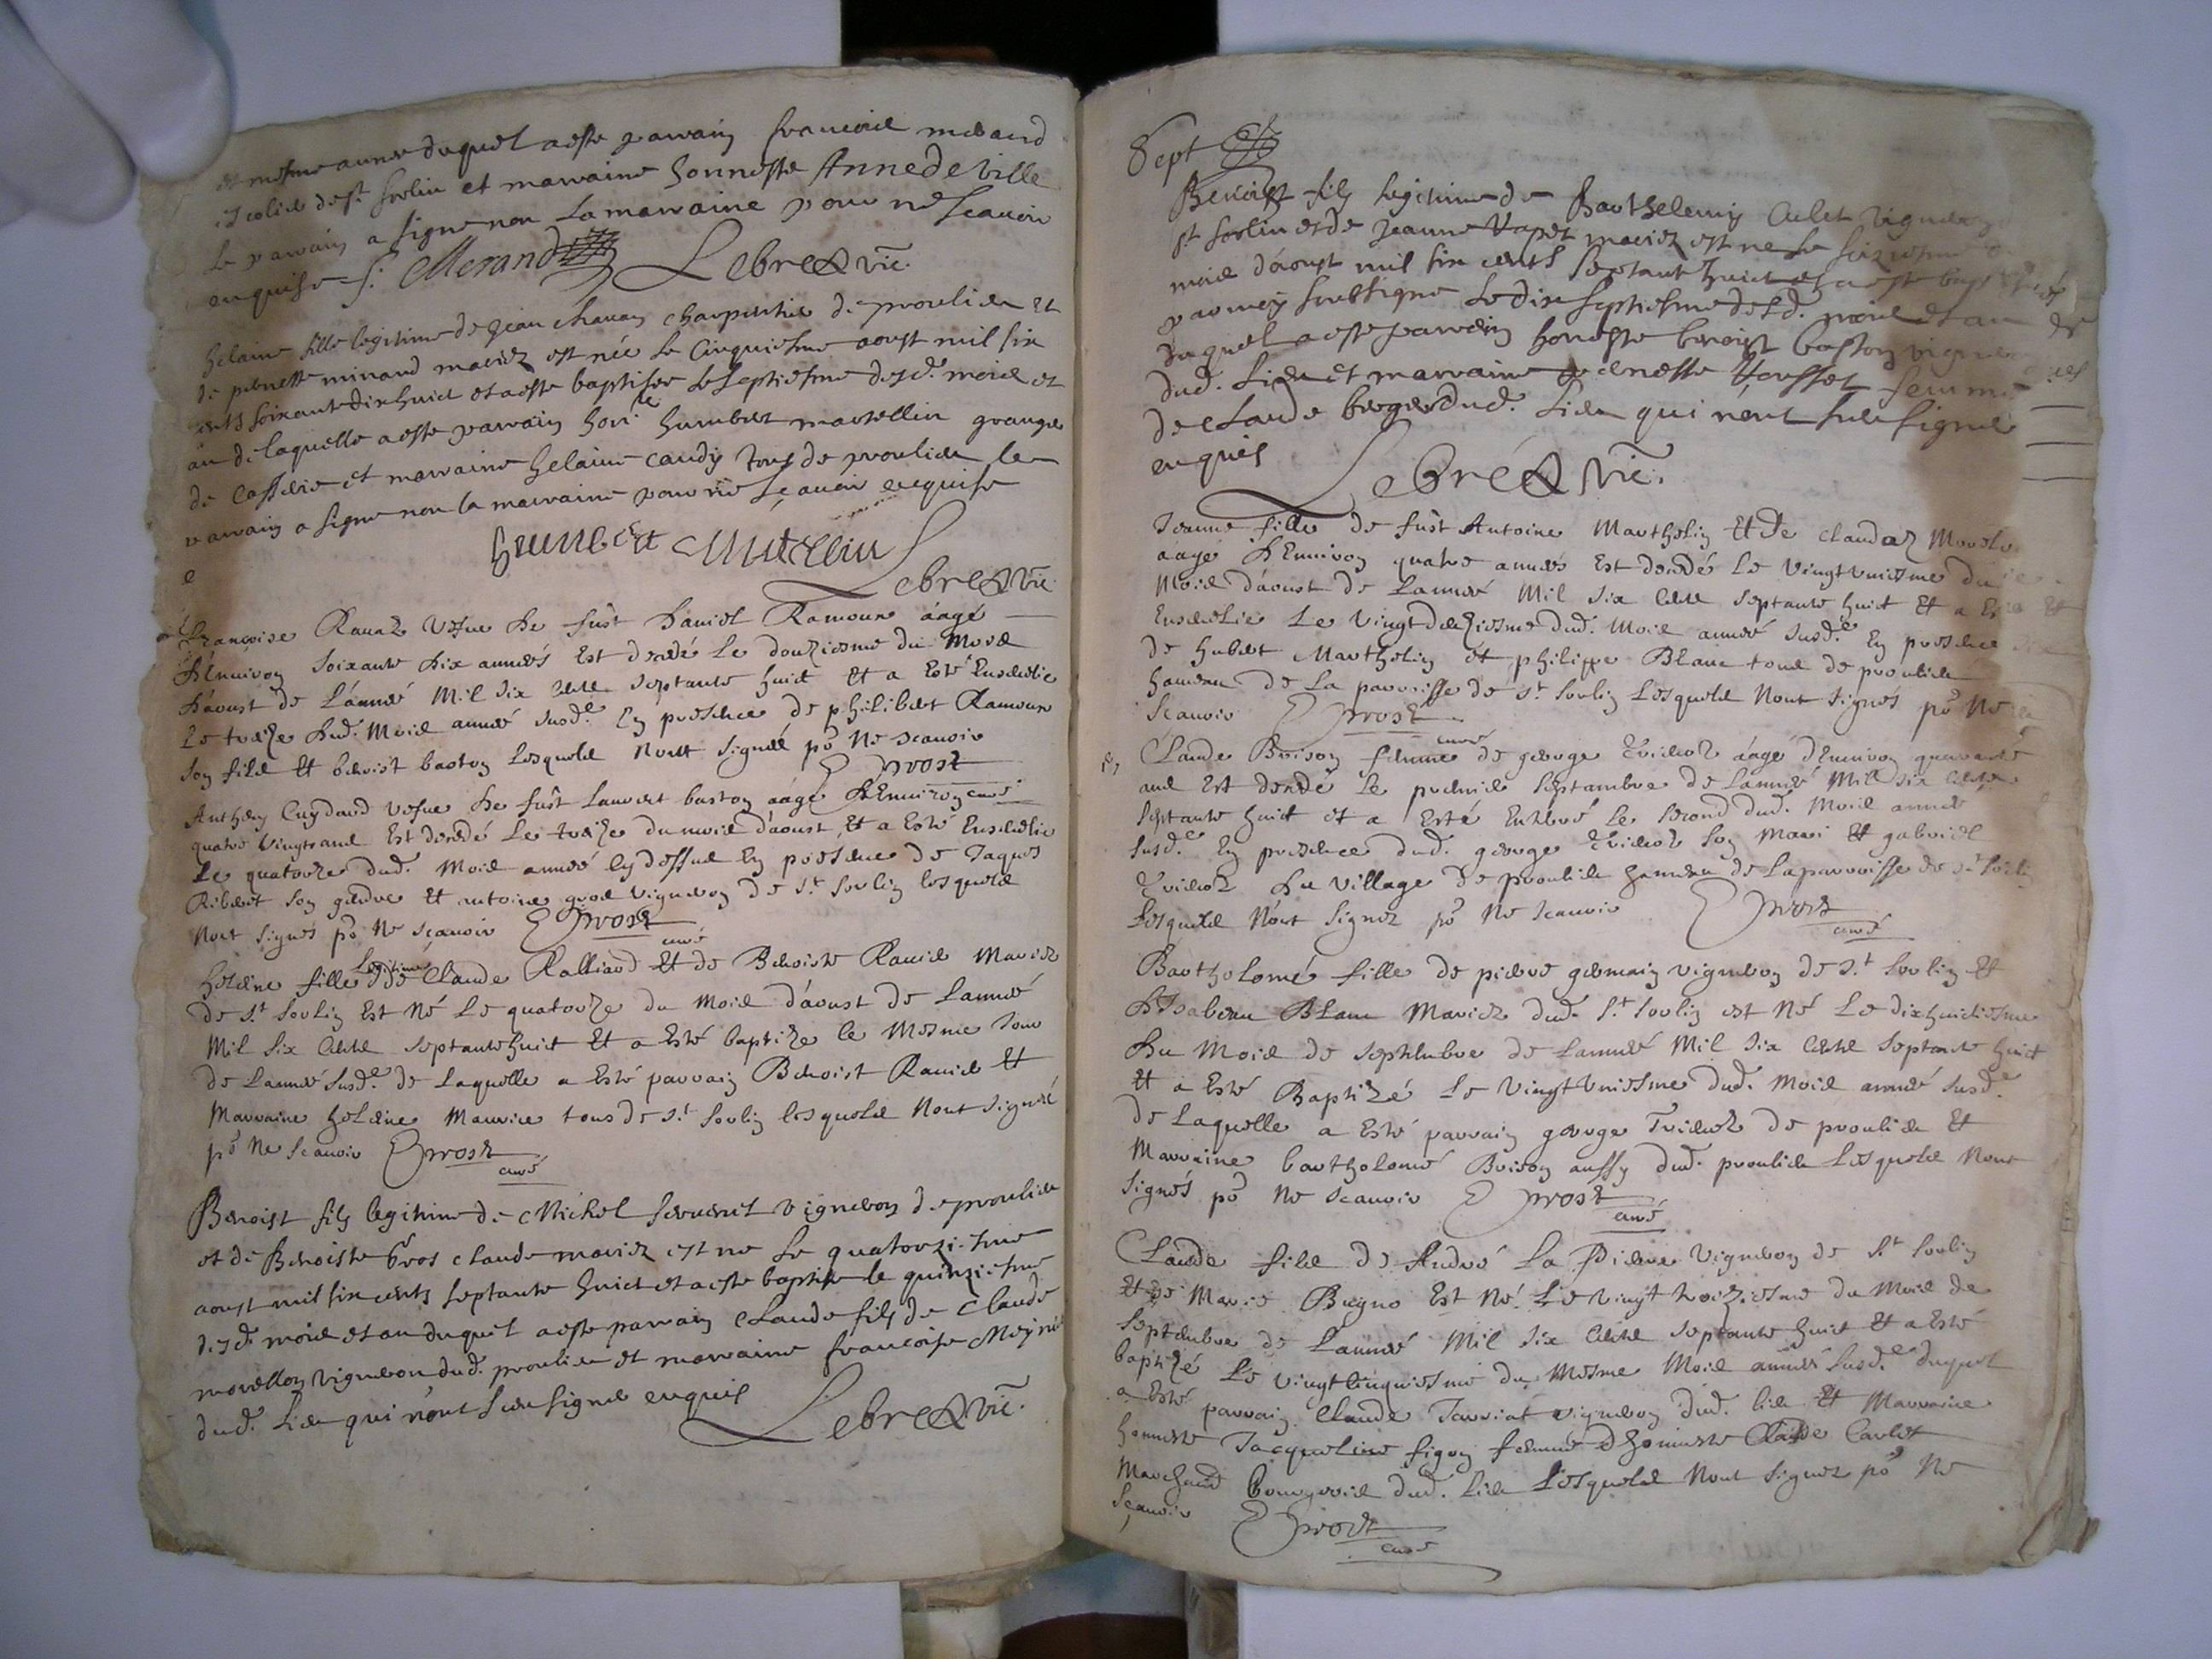 et mesme annee duquel a este parrain francois meraud
de st sorlin et marraine honneste Anne de ville
le parrain a signe non la marraine pour ne scavoir
enquise f. Merand Lebre vic.
helaine fille legitime de Jean charpentier de proulieu et
de pernette minand mariez est née le cinquiesme aoust mil six
cents soixante dix huict et a este baptisee le septiesme desd. mois et
an de laquelle a este parrain hon^le humbert martellin granger
de et marraine helaine caudy tous de proulieu le
parrain a signe non la marraine pour ne sçavoir enquise
humbert Martellin
Lebre vic.
Françoise Ravat vefue de fust Daniel Ramoux aagé
d'Enuiron soixante dix années Est decedé le douziesme du Mois
d'aoust de L'année Mil six cents septante huict Et a Esté Enseuelie
Le treize dud. Mois année susd.^e En presence de philibert Ramoux
son fils Et benoist baston Lesquels Nont signéz po^r Ne scauoir
Prost
curé
Anthoy Cuydard vefue de fust Laurent baston aagé d'Enuiron
quatre vingts ans Est decedé Le treize du mois d'aoust, Et a Esté Enseuelie
Le quatorze dud. Mois année cy dessus En presence de Jaques
Ribert son gendre Et antoine gros vigneron de S.^t Sorlin lesquels
Nont signés po^r Ne sçauoir Prost
curé
heleine fille Legitime de Claude Ralliard Et de Benoiste Rauier Mariez
de S.^t Sorlin Est Né Le quatorze du Mois d'aoust de L'année
Mil six cents septante huict Et a Esté baptizé le Mesme Jour
de L'année susd.^e de Laquelle a Esté parrain Benoist Rauier Et
Marraine heleine Maurice tous de S.^t Sorlin lesquels Nont signéz
po^r Ne scauoir Prost
curé
Benoist fils legitime de Michel vigneron de proulieu
et de Benoiste Gros claude mariez est ne le quatorziesme
aoust mil six cents septante huict et a este baptise le quinziesme
desd. mois et an duquel a este parrain Claude fils de Claude
morellon vigneron dud. proulieu et marraine francoise Meynier
dud. lieu qui n'ont sceu signer enquis Lebre vic.
Sept
Benoist fils legitime de Barthelemy vigneron
st sorlin et de Jeanne mariez est ne le seiziesme
mois d'aoust mil six cents septante huict et a este baptisé
par moy soubsigne le dix septiesme desd. mois et an
duquel a este parrain honeste benoist baston vigneron
dud. lieu et marraine femme
de Claude berger dud. lieu qui n'ont sceu signer
enquis Lebre vic.
Jeanne fille de fust Antoine Marthelin Et de Claudaz
aagé d'Enuiron quatre années Est decedé Le vingt vniesme du
Mois d'aoust de L'année Mil six cents septante huict Et a Esté
Enseuelie Le vingt deuziesme dud. Mois année susd.^e En presence
de hubert Marthelin et philippe Blanc tous de proulieu
hameau de La parroisse de S.^t Sorlin Lesquels Nont signés po^r Ne
scauoir Prost
curé
Claude Brison femme de george Triedoz aagé d'Enuiron quarante
ans Est decedé Le premier septambre de L'année Mil six cents
septante huict et a Esté Enterré Le second dud. Mois année
susd.^e En presence dud. george son Mari Et gabriel
du village de proulieu hameau de La parroisse de S.^t Sorlin
Lesquels N'ont signez po^r Ne scauoir Prost
curé
Bartholomé fille de pierre germain vigneron de S.^t Sorlin Et
d'Isabeau Blanc Mariez dud. S.^t Sorlin est Né Le dixhuictiesme
du Mois de septembre de L'année Mil six cents septante huict
Et a Esté Baptizé Le vingt vniesme dud. Mois année susd.^e
de Laquelle a Esté parrain george de proulieu Et
Marraine bartholomé Brison aussy dud. proulieu Lesquels Nont
signés po^r Ne scauoir Prost
curé
Claude fils de André La Pierre vigneron de S.^t Sorlin
Et de Marie Est Né Le vingt troiziesme du Mois de
septembre de L'année Mil six cents septante huict Et a Esté
baptizé Le vingt cinquiesme du Mesme Mois année susd.^e duquel
a Esté parrain Claude vigneron dud. lieu Et Marraine
honneste Jacqueline figon femme d'honneste Carlet
Marchand bourgeois dud. Lieu Lesquels Nont signez po^r Ne
sçauoir Prost
curé